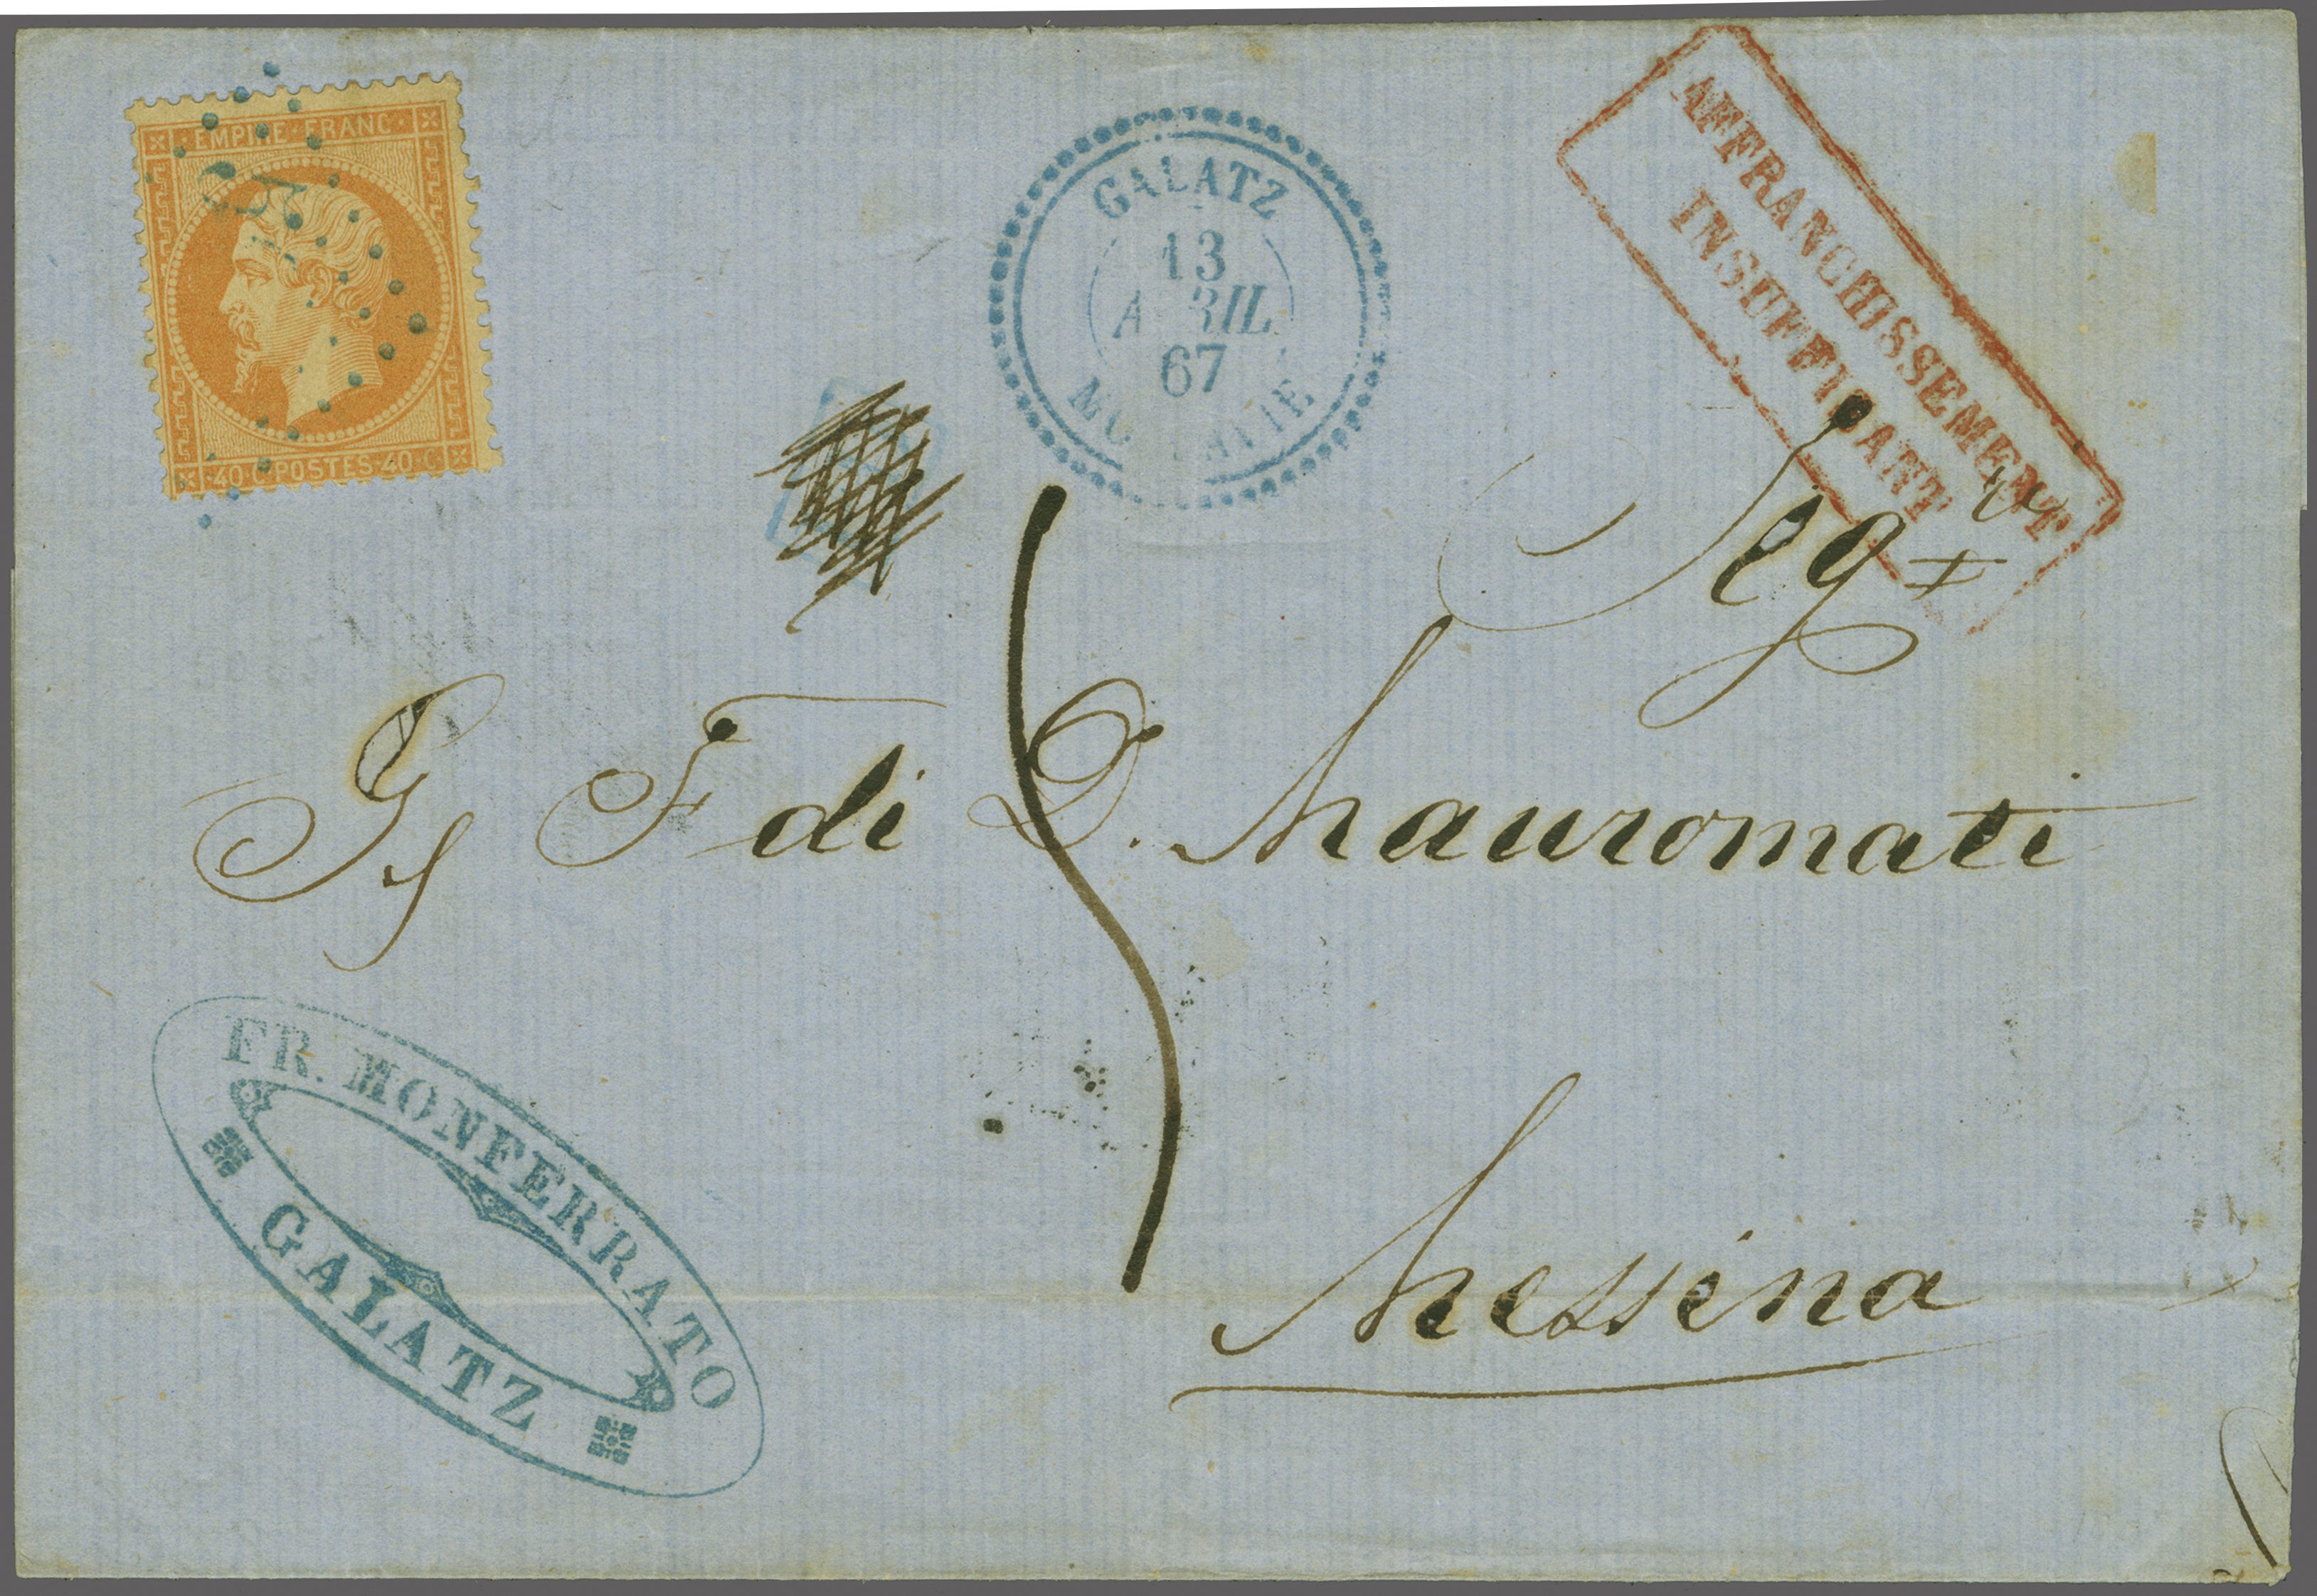 EMPIRE FRANC
40 C POSTES 40 C
GALATZ
13
AVRIL
67
MOLDAVIE
AFFRANCHISSEMENT
INSUFFISANT
Sigri
F di D. Mauromati
Messina
FR. MONFERRATO
GALATZ